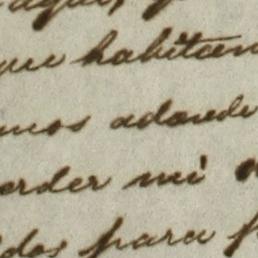 que habitan
mos adonde
erder mi
dos para